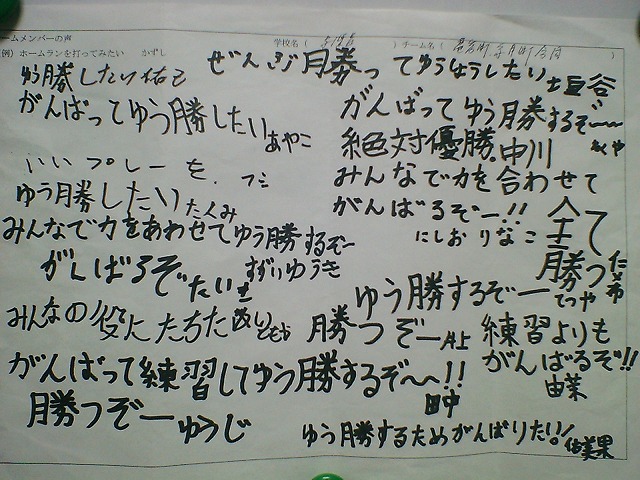 ームメンバーの声
学校名(
)チーム名(
例)ホームランを打ってみたい かずし
ゆう勝したい佑己
ぜんぶ勝ってゆうしょうしたい 垣谷
がんばってゆう勝したい あやこ
がんばってゆう勝するぞ〜〜
絶対優勝.中川
いいプレーを.フミ
みんなで力を合わせて
がんばるぞー!! にしおりなこ
ゆう勝したい たくみ
全て勝つ 仁希
みんなで力をあわせてゆう勝するぞー すがいゆうき
がんばるぞ たいき
ゆう勝するぞー てつや
みんなの役にたちたい
勝つぞー 井上
練習よりもがんばるぞ!! 由菜
がんばって練習してゆう勝するぞ〜〜!! 田中
勝つぞー ゆうじ
ゆう勝するためがんばりたい! 佑美果